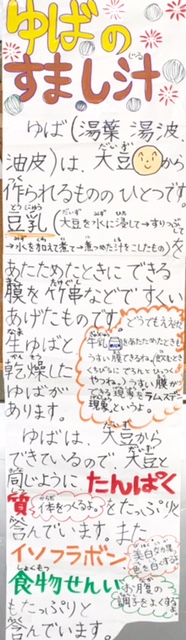 ゆばの
すまし汁
ゆば(湯葉、湯波、
油皮)は、大豆から
作られるもののひとつです。
豆乳(大豆を水に浸して→すりつぶして
→水をくわえて煮て→煮つめた汁をこしたもの)を
あたためたときにできる
膜を竹串などですくい
あげたものです。
生ゆばと
乾燥した
ゆばが
あります。
どうでもええけど
牛乳をあたためたときも
うすい膜できるね。
やつね。うすい膜が
現象をラムスデン
現象というよ。
ゆばは、大豆から
できているので、大豆と
同じように たんぱく
質(体をつくるよ。)をたっぷり
含んでいます。また
イソフラボン
美白など
色を白くする
食物せんい
お月夏の
調子をよくする
もたっぷりと
含んでいます。